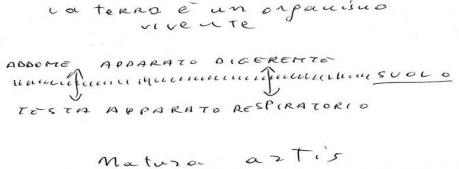 La terra è un organismo
vivente
ADDOME APPARATO DIGERENTE
SUOLO
TESTA APPARATO RESPIRATORIO
Natura artis